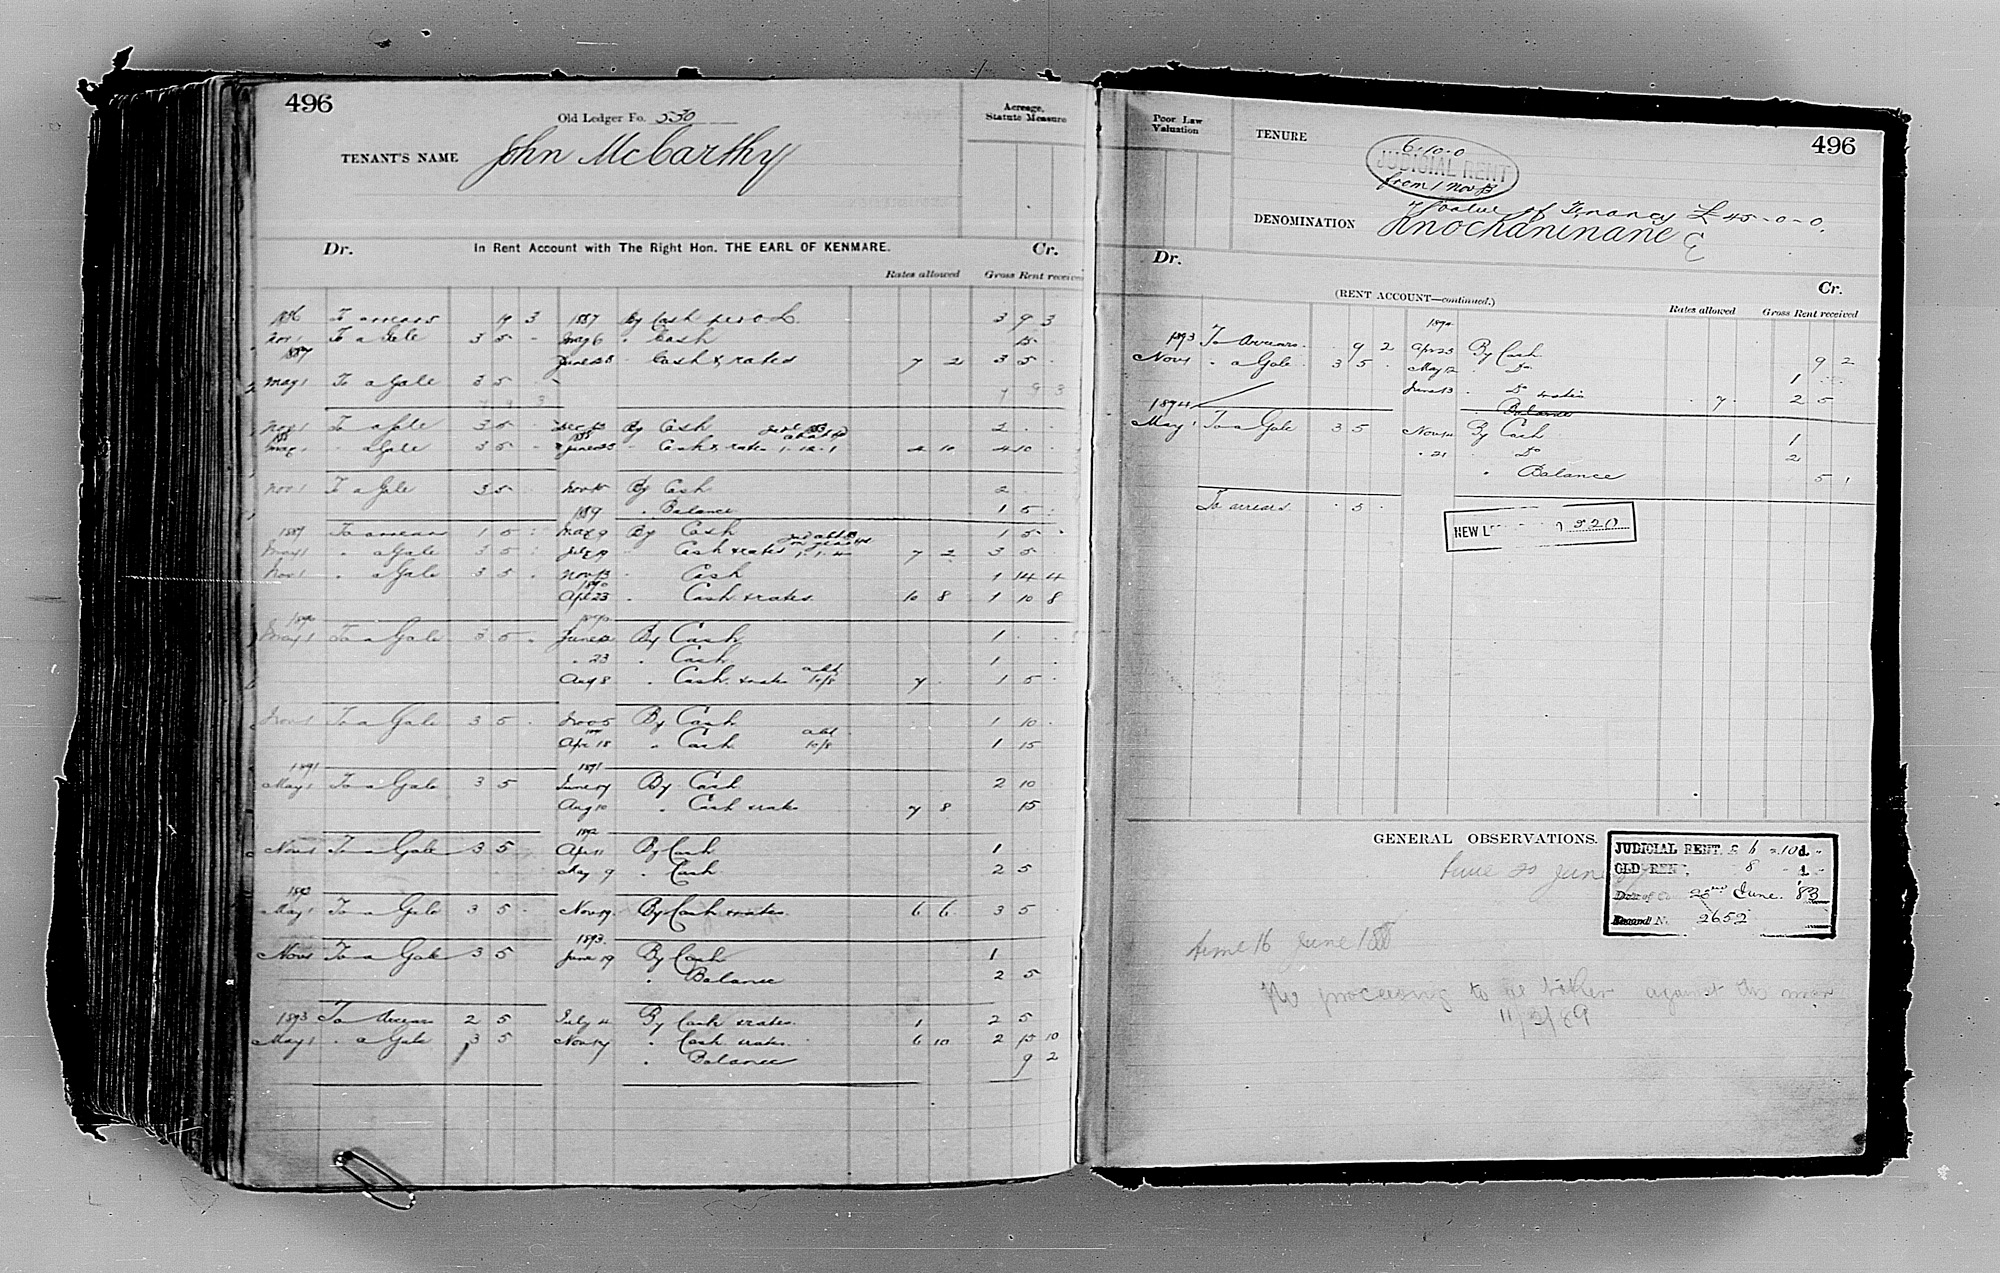 496
Old Ledger Fo. 530
TENANT'S NAME John McCarthy
Acreage, Statute Measure
Dr. In Rent Account with The Right Hon. THE EARL OF KENMARE. Cr.
Rates allowed Gross Rent received
1886 To arrears 19 3 1887 By Cash per O L. 3 9 3
Nov 1 To a Gale 3 5 - May 6 " Cash 15 -
1887 June 28 Cash & rates 7 2 3 5 -
May 1 To a Gale 3 5 -
7 9 3 7 9 3
Nov 1 To a Gale 3 5 - Dec 13 By Cash 2 -
88 1888
May 1 " a Gale 3 5 - June 25 " Cash & rates 1.12.1 4 10 4 10 -
Nov 1 To a Gale 3 5 - Nov 15 By Cash 2 -
1889 " Balance 1 5 -
1889 To arrears 1 5 - May 9 By Cash 1 5 -
May 1 " a Gale 3 5 - July 19 " Cash & rates 1.1.4 7 2 3 5 -
Nov 1 " a Gale 3 5 - Nov 13 " Cash 1 14 4
1890
Apr 23 " Cash & rates 10 8 1 10 8
1890 1890
May 1 To a Gale 3 5 - June 12 By Cash 1 - -
" 23 " Cash 1 -
Aug 8 " Cash & rates 10/8 7 - 1 5 -
Nov 1 To a Gale 3 5 - Nov 5 By Cash 1 10 -
Apr 18 " Cash 10/8 1 15
1891 1891
May 1 To a Gale 3 5 June 17 By Cash 2 10
Aug 10 " Cash & rates 7 8 15
1892
Nov 1 To a Gale 3 5 Apr 11 By Cash 1
May 9 " Cash 2 5
1892
May 1 To a Gale 3 5 - Nov 19 By Cash & rates 6 6 3 5 -
1893
Nov 1 To a Gale 3 5 June 19 By Cash 1
" Balance 2 5
1893 To Arrears 2 5 July 4 By Cash & rates 1 2 5
May 1 " a Gale 3 5 Nov 14 " Cash & rates 6 10 2 15 10
" Balance 9 2
Poor Law Valuation
TENURE
496
6.10.0
JUDICIAL RENT
from 1 Nov 83
Value of Tenancy £45-0-0.
DENOMINATION Knockaninane E
Dr. Cr.
(RENT ACCOUNT—continued.)
Rates allowed Gross Rent received
1894
1893 To Arrears 9 2 Apr 23 By Cash 9 2
Nov 1 " a Gale 3 5 - May 12 " Do 1 - -
June 13 " Do & rates 7 - 2 5
1894 " Balance
May 1 To a Gale 3 5 Nov 14 By Cash 1
" 21 " Do 2
" Balance 5 1
To arrears 5 -
NEW L 520
GENERAL OBSERVATIONS.
JUDICIAL RENT, £ 6 - 10 -
OLD RENT, 8 - 1 -
Date of Co 22nd June. 83
Record N. 2652
time 20 June
time 16 June 1888
No proceeding to be taken against this man
11/2/89